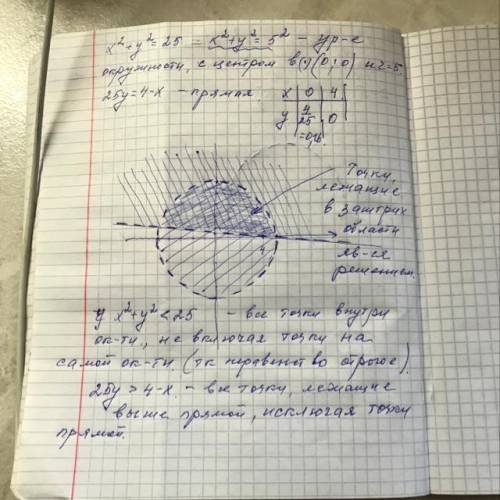 x²+y²=25 – x²+y²=5² – ур-е
окружности, с центром в (·)(0;0) и r=5.
25y=4-x – прямая.
x | 0 | 4
y | 4/25 | 0
=0,16
Точки,
лежащие
в заштрих
области
яв-ся
решением.
4
x²+y²<25 – все точки внутри
ок-ти, не включая точки на
самой ок-ти. (тк неравенство строгое).
25y>4-x. – все точки, лежащие
выше прямой, исключая точки
прямой.